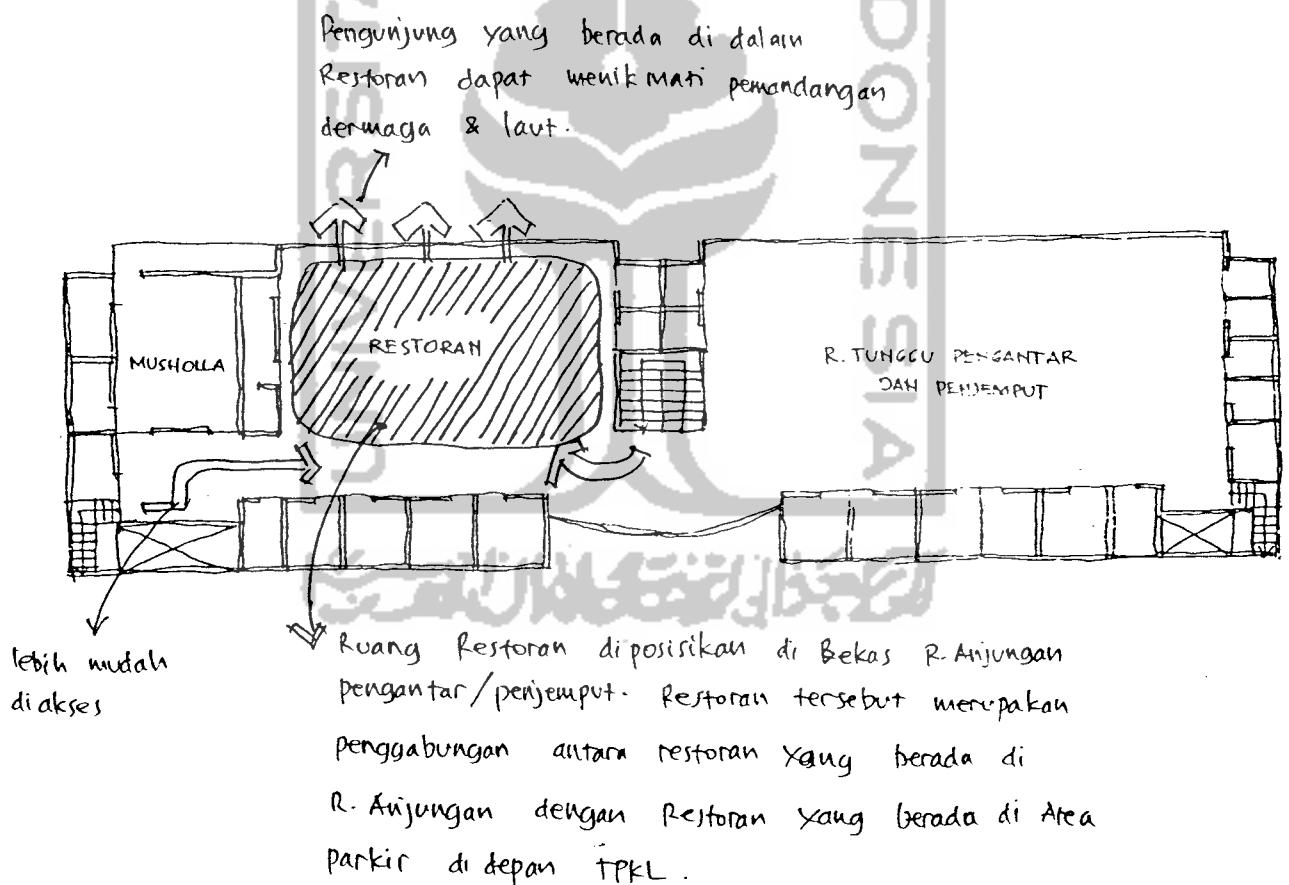 Pengunjung yang berada di dalam
Restoran dapat menikmati pemandangan
dermaga & laut.
MUSHOLLA
RESTORAN
R. TUNGGU PENGANTAR
DAN PENJEMPUT
lebih mudah
diakses
Ruang Restoran diposisikan di Bekas R. Anjungan
pengantar/penjemput. Restoran tersebut merupakan
penggabungan antara restoran yang berada di
R. Anjungan dengan Restoran yang berada di Area
parkir di depan TPKL.
INDONESIA